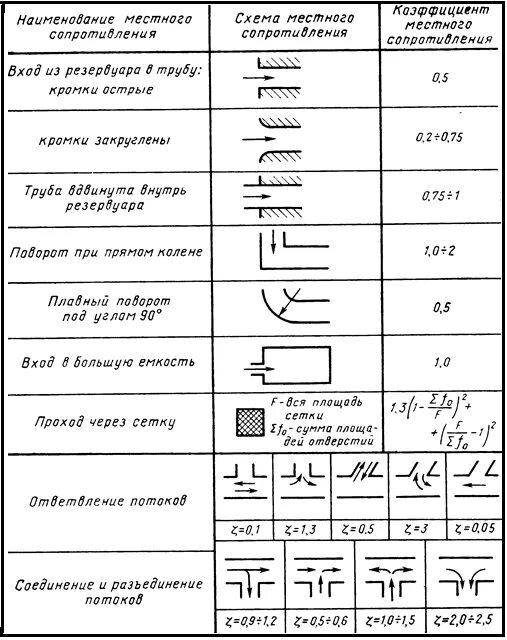 Наименование местного
сопротивления
Схема местного
сопротивления
Коэффициент
местного
сопротивления
Вход из резервуара в трубу:
кромки острые
0,5
кромки закруглены
0,2÷0,75
Труба вдвинута внутрь
резервуара
0,75÷1
Поворот при прямом колене
1,0÷2
Плавный поворот
под углом 90°
0,5
Вход в большую емкость
1,0
Проход через сетку
F-вся площадь
сетки
Σf₀-сумма площа-
дей отверстий
1,3(1-Σf₀/F)²+
+(F/Σf₀-1)²
Ответвление потоков
ζ=0,1
ζ=1,3
ζ=0,5
ζ=3
ζ=0,05
Соединение и разъединение
потоков
ζ=0,9÷1,2
ζ=0,5÷0,6
ζ=1,0÷1,5
ζ=2,0÷2,5